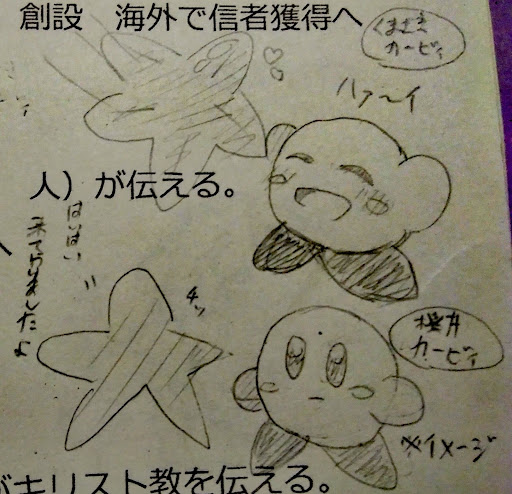 創設　海外で信者獲得へ
くまさき
カービィ
ハァ〜イ
人）が伝える。
はいはい
来てやりましたよ
チッ
桜井
カービィ
※イメージ
がキリスト教を伝える。